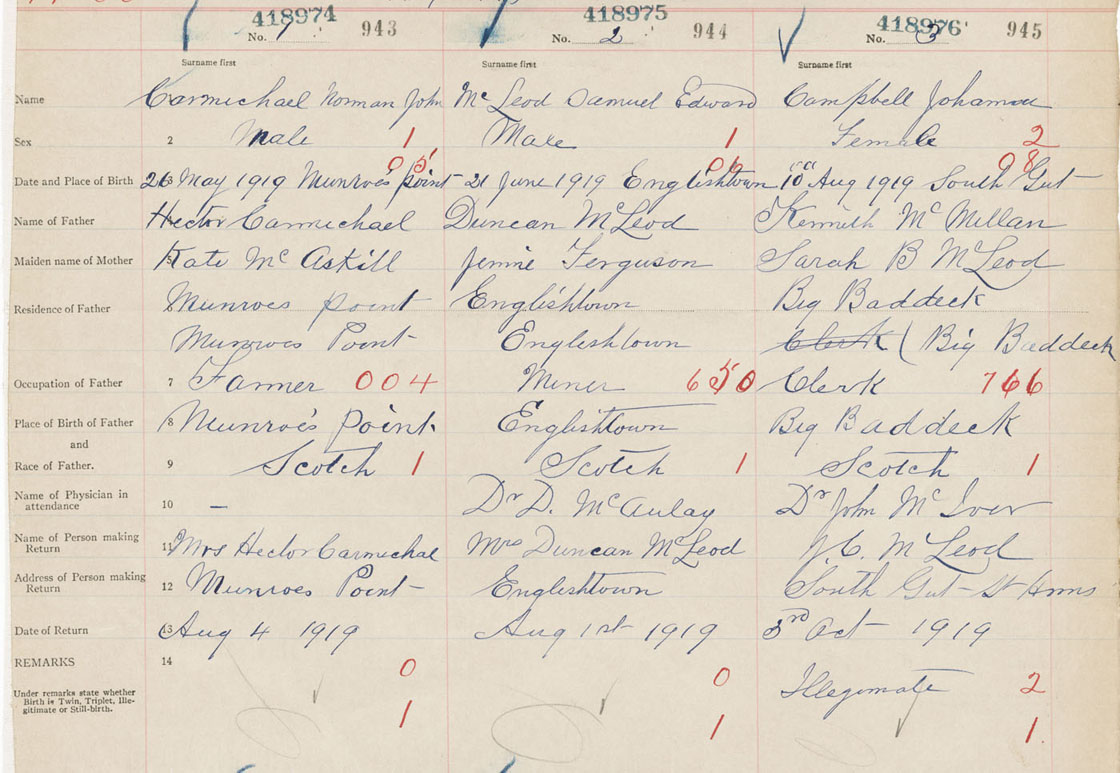 418974 418975 418976
No. 1 943 No. 2 944 No. 3 945
Surname first Surname first Surname first
Name 1 Carmichael Norman John McLeod Samuel Edward Campbell Johanna
Sex 2 Male 1 Maxe 1 Female 2
05 06 08
Date and Place of Birth 3 26 May 1919 Munroe's point 21 June 1919 Englishtown 10th Aug 1919 South Gut
Name of Father 4 Hector Carmichael Duncan McLeod Kenneth McMillan
Maiden name of Mother 5 Kate McAskill Jennie Ferguson Sarah B McLeod
Residence of Father 6 Munroes point Englishtown Big Baddeck
Munroes Point Englishtown Clerk ( Big Baddeck
Occupation of Father 7 Farmer 004 Miner 650 Clerk 766
Place of Birth of Father 8 Munroe's point Englishtown Big Baddeck
and
Race of Father. 9 Scotch 1 Scotch 1 Scotch 1
Name of Physician in attendance 10 – Dr D. McAulay Dr John McIver
Name of Person making Return 11 Mrs Hector Carmichal Mrs Duncan McLeod McLeod
Address of Person making Return 12 Munroes Point Englishtown South Gut St Anns
Date of Return 13 Aug 4 1919 Aug 1st 1919 3rd Oct 1919
REMARKS 14 0 0 Illegimate 2
Under remarks state whether
Birth is Twin, Triplet, Ille-
gitimate or Still-birth.
1 1 1